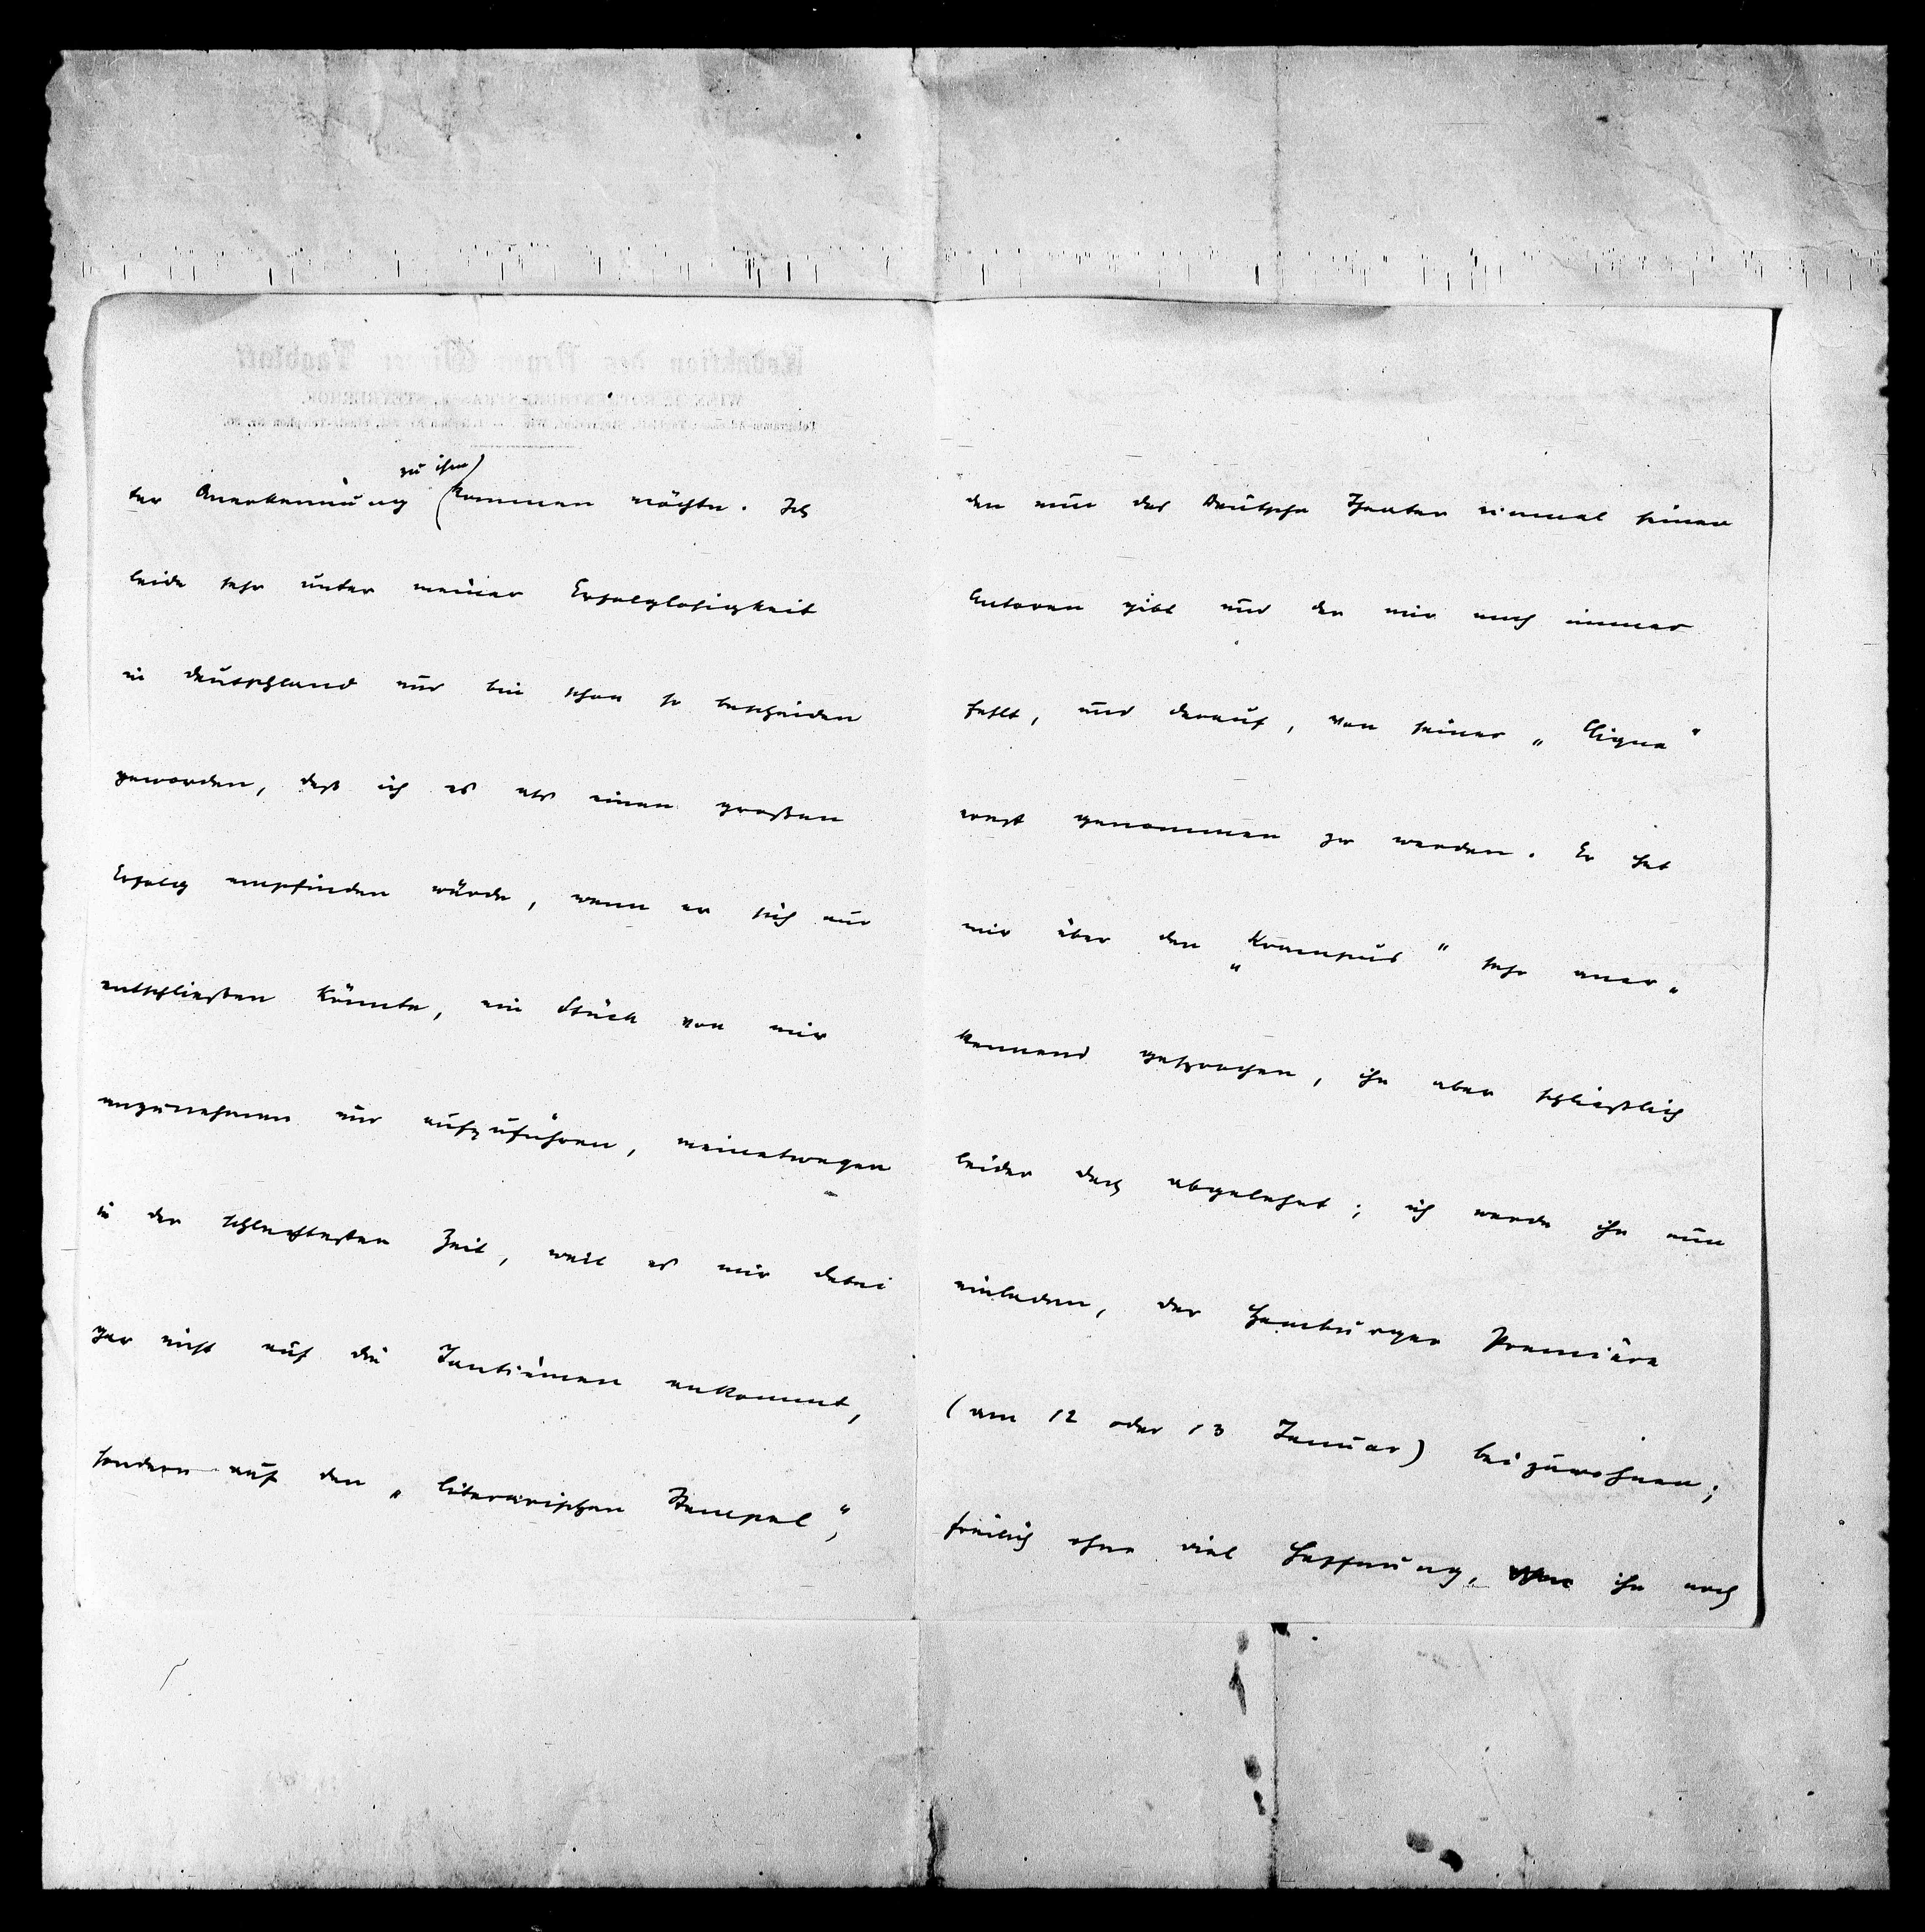 ter Anerkennung zu ihm kommen möchte. Ich
leide sehr unter meiner Erfolglosigkeit
in Deutschland und bin schon so bescheiden
geworden, daß ich es als einen großen
Erfolg empfinden würde, wenn er sich nur
entschließen könnte, ein Stück von mir
anzunehmen und aufzuführen, meinetwegen
in der schlechtesten Zeit, weil es mir dabei
gar nicht auf die Tantièmen ankommt,
sondern auf den „literarischen Stempel“,
den nun das Deutsche Theater einmal seinen
Autoren gibt und der mir noch immer
fehlt, und darauf, von seiner „Clique“
ernst genommen zu werden. Er hat
mir über den „Krampus“ sehr aner-
kennend gesprochen, ihn aber schließlich
leider doch abgelehnt; ich werde ihn nun
einladen, der Hamburger Première
(am 12 oder 13 Januar) beizuwohnen;
freilich ohne viel Hoffnung, ihn noch